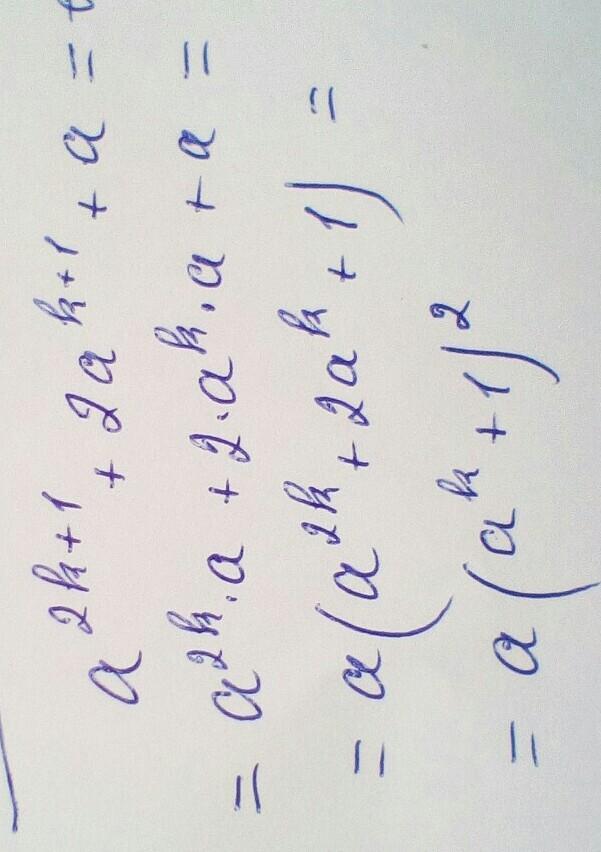 a^{2k+1} + 2a^{k+1} + a =
= a^{2k}·a + 2·a^k·a + a =
= a(a^{2k} + 2a^k + 1) =
= a(a^k + 1)^2